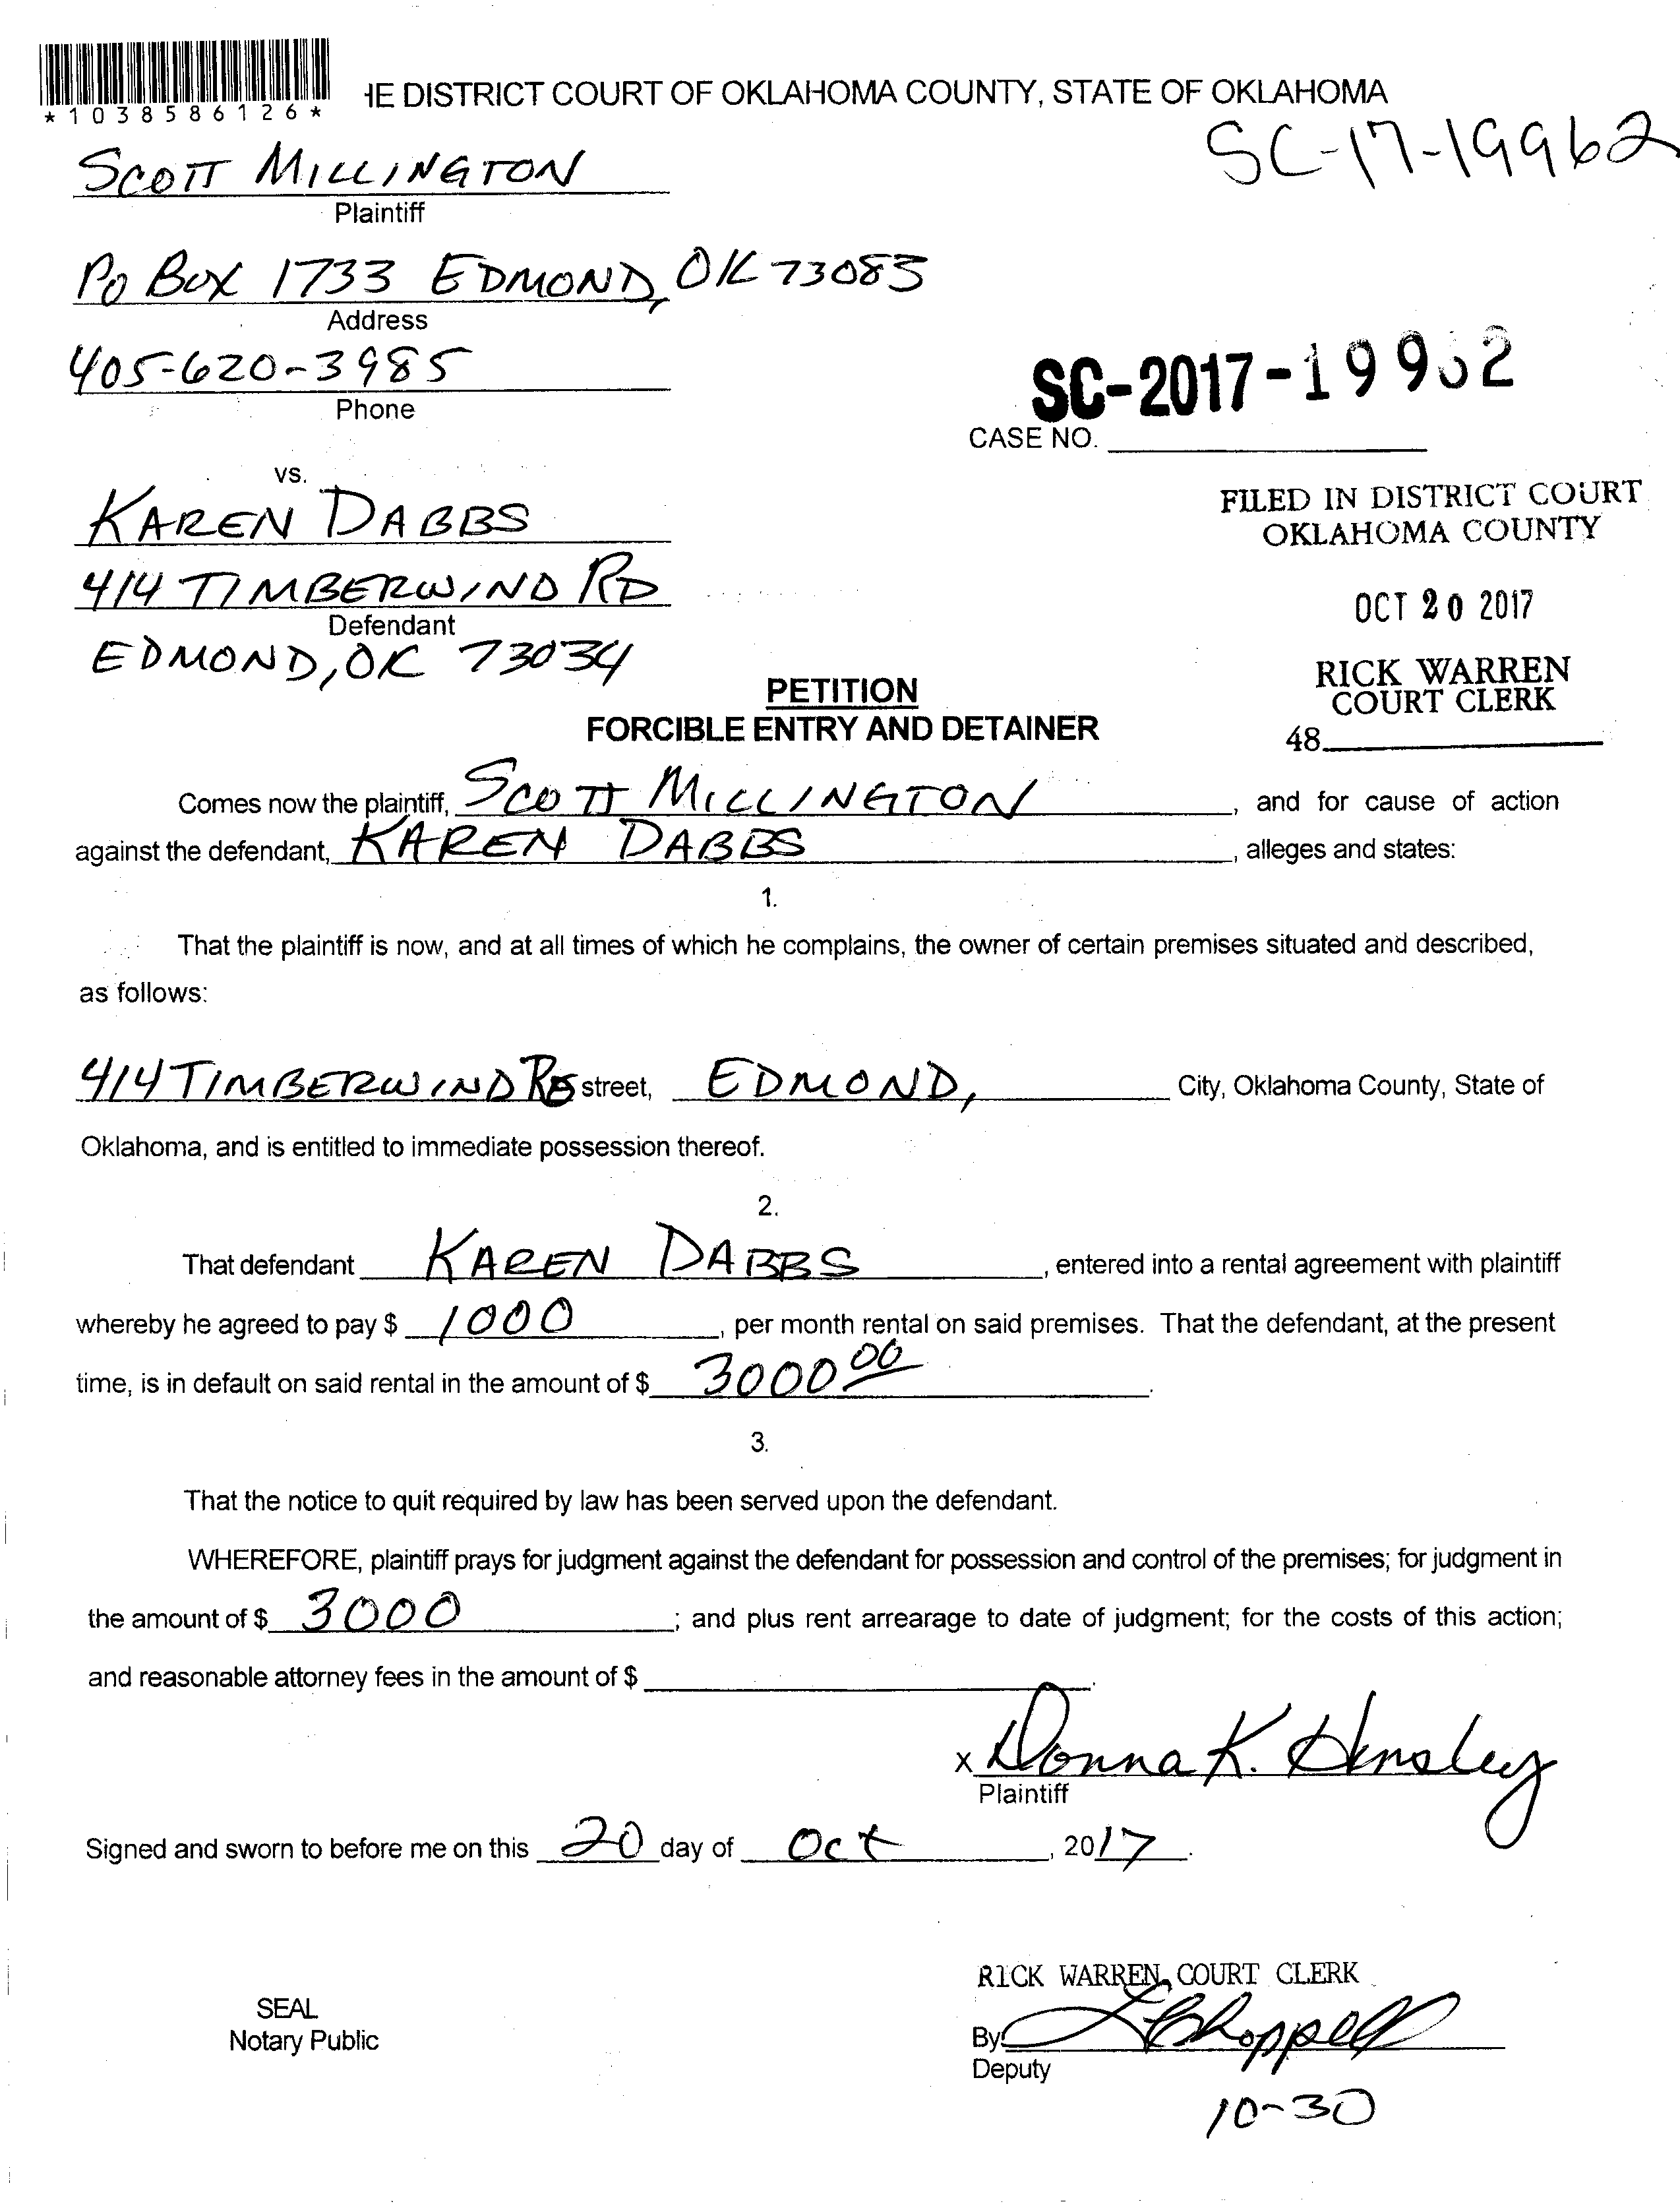 *1038586126*
HE DISTRICT COURT OF OKLAHOMA COUNTY, STATE OF OKLAHOMA
SC-17-19962
SCOTT MILLINGTON
Plaintiff
PO BOX 1733 EDMOND, OK 73083
Address
405-620-3985
Phone
SC-2017-19962
CASE NO.
vs.
KAREN DABBS
414 TIMBERWIND RD
Defendant
EDMOND, OK 73034
FILED IN DISTRICT COURT
OKLAHOMA COUNTY
OCT 20 2017
RICK WARREN
COURT CLERK
48
PETITION
FORCIBLE ENTRY AND DETAINER
Comes now the plaintiff, SCOTT MILLINGTON, and for cause of action
against the defendant, KAREN DABBS, alleges and states:
1.
That the plaintiff is now, and at all times of which he complains, the owner of certain premises situated and described,
as follows:
414 TIMBERWIND RD street, EDMOND, City, Oklahoma County, State of
Oklahoma, and is entitled to immediate possession thereof.
2.
That defendant KAREN DABBS, entered into a rental agreement with plaintiff
whereby he agreed to pay $ 1000, per month rental on said premises. That the defendant, at the present
time, is in default on said rental in the amount of $ 3000 00.
3.
That the notice to quit required by law has been served upon the defendant.
WHEREFORE, plaintiff prays for judgment against the defendant for possession and control of the premises; for judgment in
the amount of $ 3000; and plus rent arrearage to date of judgment; for the costs of this action;
and reasonable attorney fees in the amount of $ .
x Donna K. Hensley
Plaintiff
Signed and sworn to before me on this 20 day of Oct, 2017.
RICK WARREN, COURT CLERK
SEAL
Notary Public
By:
Deputy
10-30